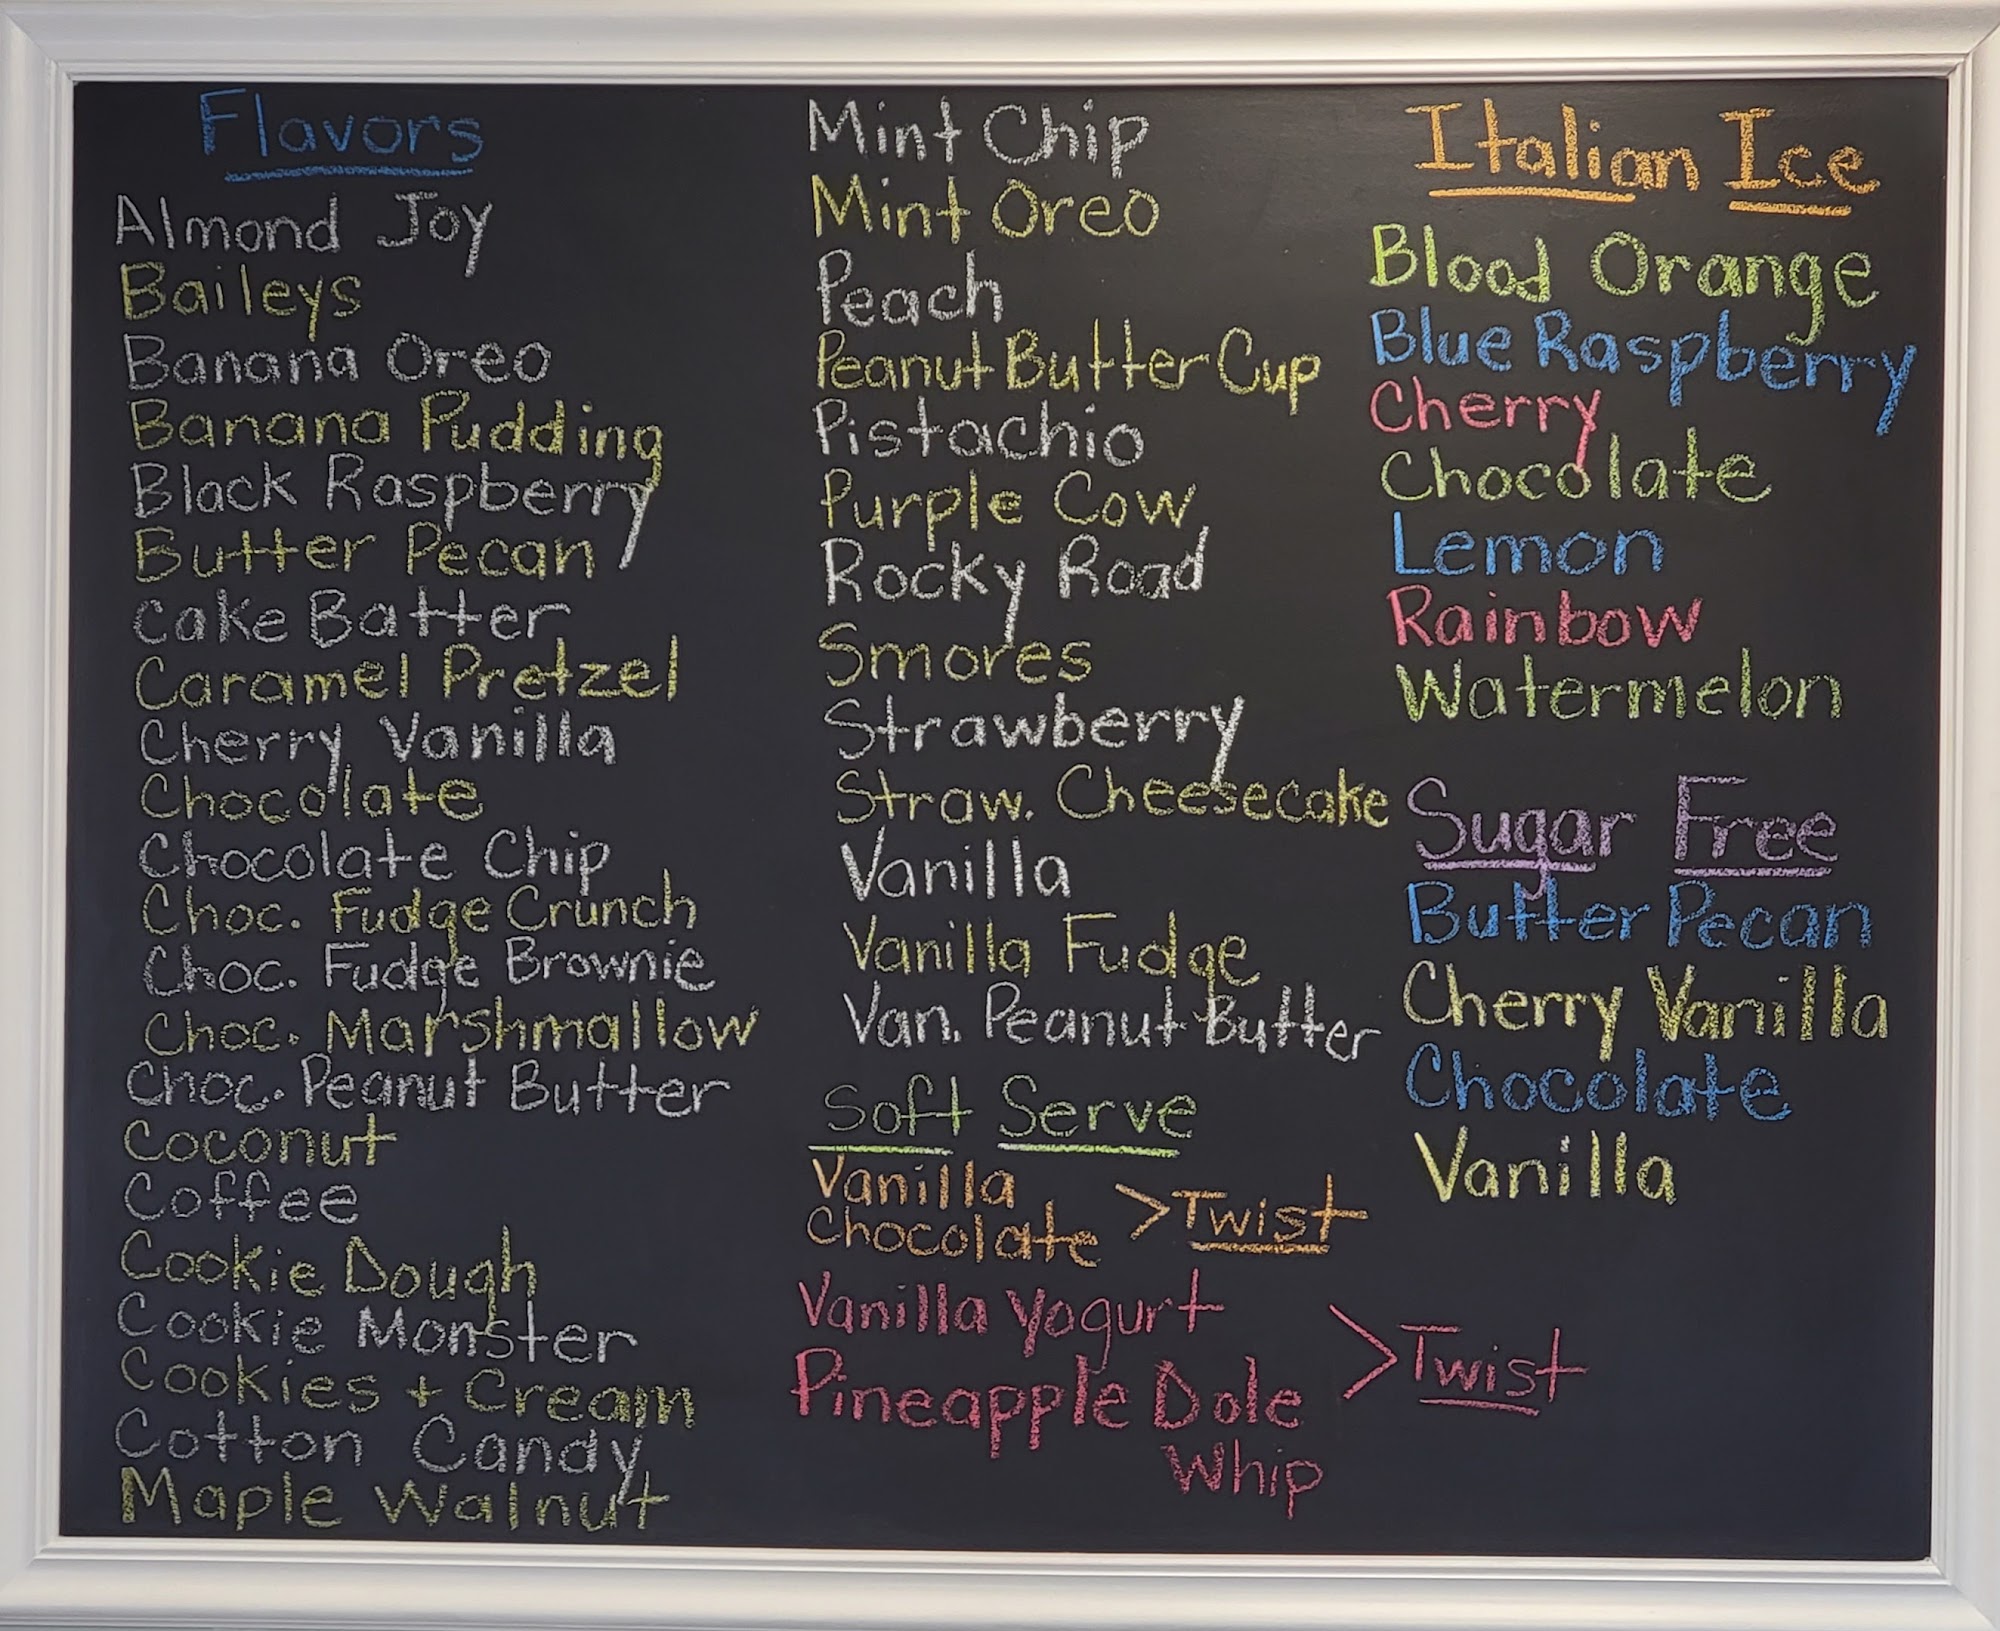 Flavors
Almond Joy
Baileys
Banana Oreo
Banana Pudding
Black Raspberry
Butter Pecan
Cake Batter
Caramel Pretzel
Cherry Vanilla
Chocolate
Chocolate Chip
Choc. Fudge Crunch
Choc. Fudge Brownie
Choc. Marshmallow
Choc. Peanut Butter
Coconut
Coffee
Cookie Dough
Cookie Monster
Cookies + Cream
Cotton Candy
Maple Walnut
Mint Chip
Mint Oreo
Peach
Peanut Butter Cup
Pistachio
Purple Cow
Rocky Road
Smores
Strawberry
Straw. Cheesecake
Vanilla
Vanilla Fudge
Van. Peanut Butter
Soft Serve
Vanilla
Chocolate > Twist
Vanilla Yogurt
Pineapple Dole > Twist
Whip
Italian Ice
Blood Orange
Blue Raspberry
Cherry
Chocolate
Lemon
Rainbow
Watermelon
Sugar Free
Butter Pecan
Cherry Vanilla
Chocolate
Vanilla